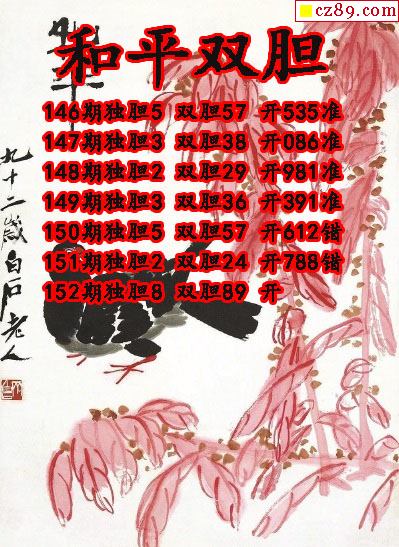 cz89.com
和平双胆
146期独胆5 双胆57 开535准
147期独胆3 双胆38 开086准
148期独胆2 双胆29 开981准
149期独胆3 双胆36 开391准
150期独胆5 双胆57 开612错
151期独胆2 双胆24 开788错
152期独胆8 双胆89 开
九十二岁白石老人